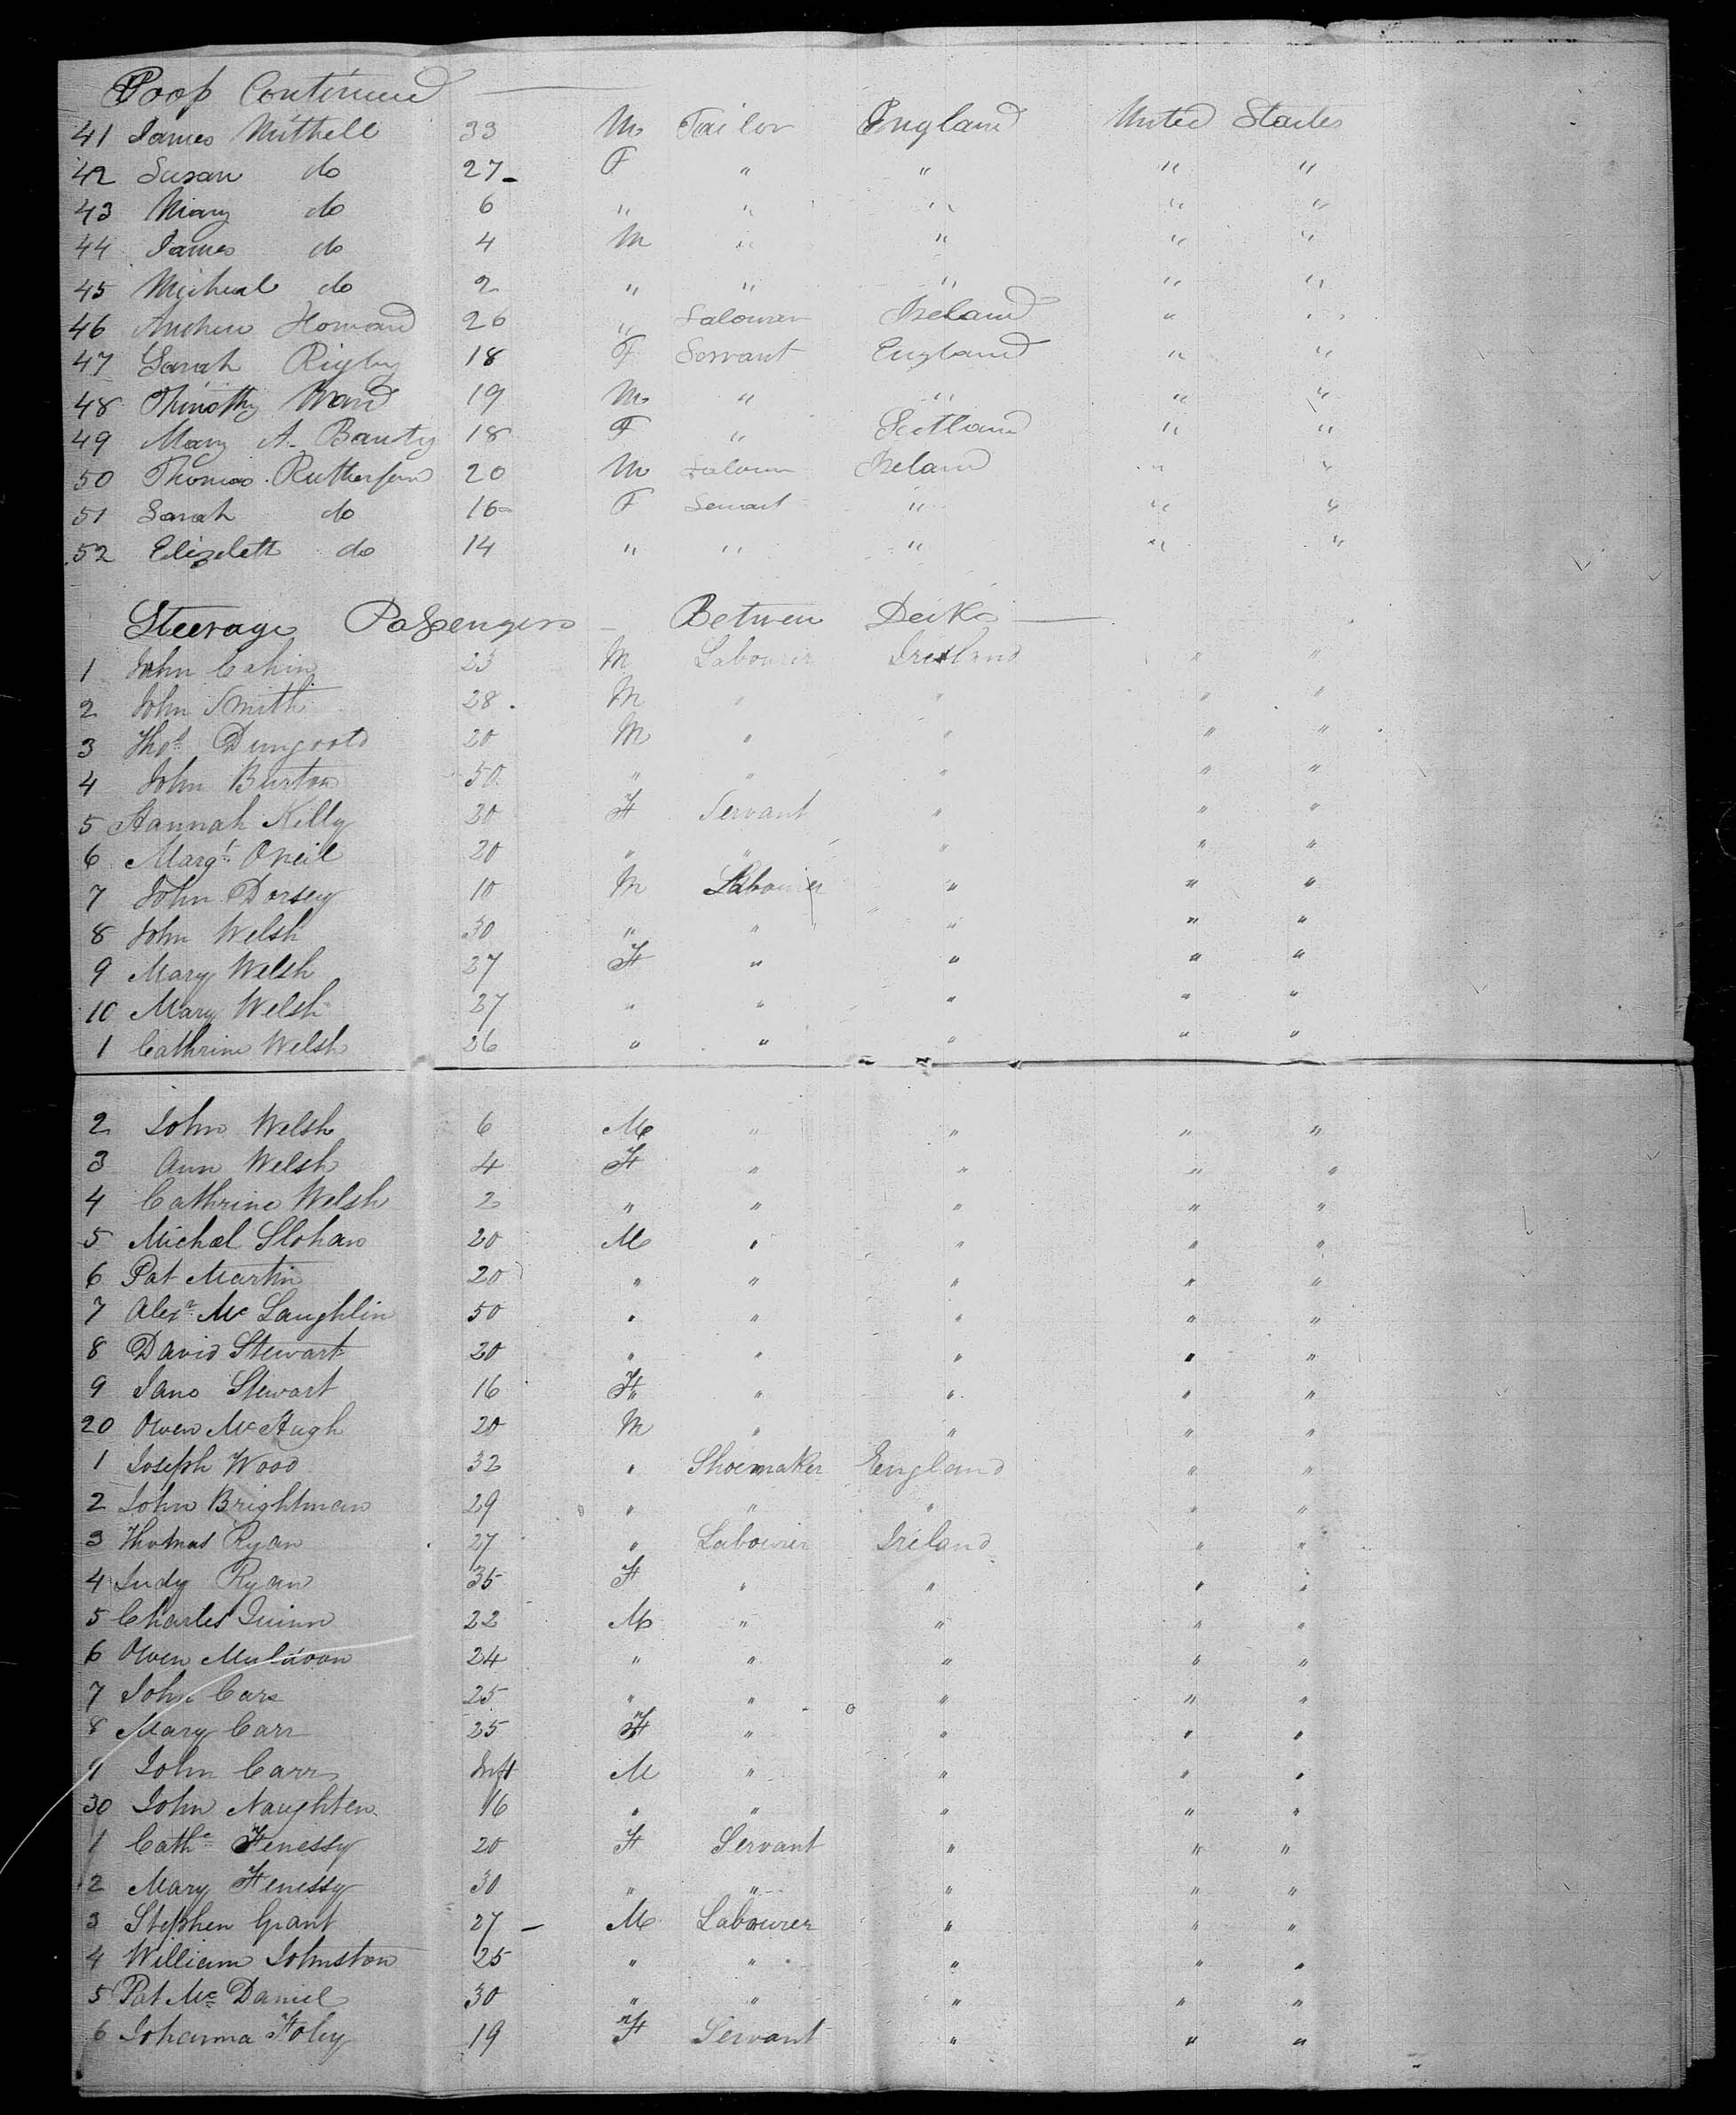 Poop Continued
41 James Mithell 33 M Tailor England United States
42 Susan do 27 F " " " "
43 Mary do 6 " " " " "
44 James do 4 M " " " "
45 Micheal do 2 " " " " "
46 Andrew Howard 26 " Labourer Ireland " "
47 Sarah Rigby 18 F Servant England " "
48 Thimothy Ward 19 M " " " "
49 Mary A. Bauty 18 F " Scotland " "
50 Thomas Rutherford 20 M Labourer Ireland " "
51 Sarah do 16 F Servant " " "
52 Elizabeth do 14 " " " " "
Steerage Passengers Between Decks
1 John Cahin 23 M Labourer Ireland " "
2 John Smith 28 M " " " "
3 Thos 20 M " " " "
4 John Burton 50 " " " " "
5 Hannah Kelly 30 F Servant " " "
6 Margt Oneil 20 " " " " "
7 John Dorsey 10 M Labourer " " "
8 John Welsh 30 " " " " "
9 Mary Welsh 27 F " " " "
10 Mary Welsh 27 " " " " "
1 Cathrine Welsh 26 " " " " "
2 John Welsh 6 M " " " "
3 Ann Welsh 4 F " " " "
4 Cathrine Welsh 2 " " " " "
5 Michael Slohan 20 M " " " "
6 Pat Martin 20 " " " " "
7 Alexr Mc Laughlin 50 " " " " "
8 David Stewart 20 " " " " "
9 Jane Stewart 16 F " " " "
20 Owen McHugh 20 M " " " "
1 Joseph Wood 32 " Shoemaker England " "
2 John Brightman 29 " " " " "
3 Thomas Ryan 27 " Labourer Ireland " "
4 Judy Ryan 35 F " " " "
5 Charles Quinn 22 M " " " "
6 Owen Muldoon 24 " " " " "
7 John Carr 25 " " " " "
8 Mary Carr 25 F " " " "
9 John Carr Inft M " " " "
30 John Naughten 16 " " " " "
1 Cathe Fenessy 20 F Servant " " "
2 Mary Fenessy 30 " " " " "
3 Stephen Grant 27 M Labourer " " "
4 William Johnston 25 " " " " "
5 Pat Mc Daniel 30 " " " " "
6 Johanna Foley 19 F Servant " " "